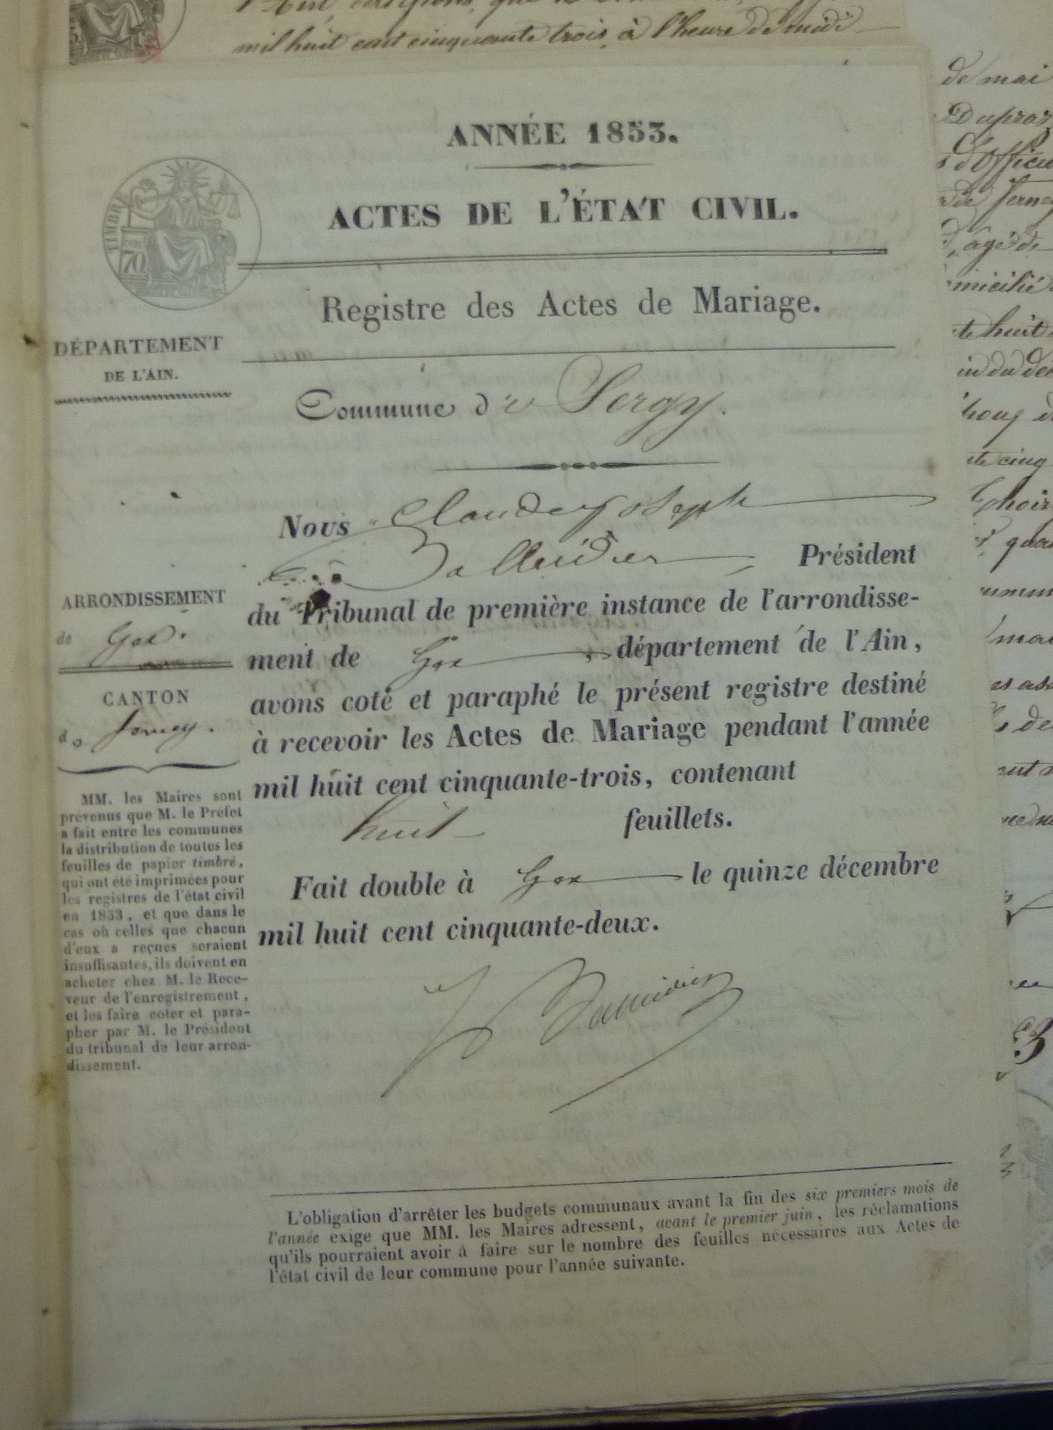 mil huit cent cinquante trois, à l'heure de midi
ANNÉE 1853.
ACTES DE L'ÉTAT CIVIL.
TIMBRE
70
Registre des Actes de Mariage.
DÉPARTEMENT
DE L'AIN.
Commune de Sergy.
Nous Claude Joseph
Président
du Tribunal de première instance de l'arrondisse-
ment de Gex département de l'Ain,
avons coté et paraphé le présent registre destiné
à recevoir les Actes de Mariage pendant l'année
mil huit cent cinquante-trois, contenant
huit feuillets.
Fait double à Gex le quinze décembre
mil huit cent cinquante-deux.
ARRONDISSEMENT
de Gex.
CANTON
de Ferney.
MM. les Maires sont
prévenus que M. le Préfet
a fait entre les communes
la distribution de toutes les
feuilles de papier timbré,
qui ont été imprimées pour
les registres de l'état civil
en 1853, et que dans le
cas où celles que chacun
d'eux a reçues seraient
insuffisantes, ils doivent en
acheter chez M. le Rece-
veur de l'enregistrement,
et les faire coter et para-
pher par M. le Président
du tribunal de leur arron-
dissement.
L'obligation d'arrêter les budgets communaux avant la fin des six premiers mois de
l'année exige que MM. les Maires adressent, avant le premier juin, les réclamations
qu'ils pourraient avoir à faire sur le nombre des feuilles nécessaires aux Actes de
l'état civil de leur commune pour l'année suivante.
de mai
Dupraz
d'Officier
âgé de
te huit
te cinq